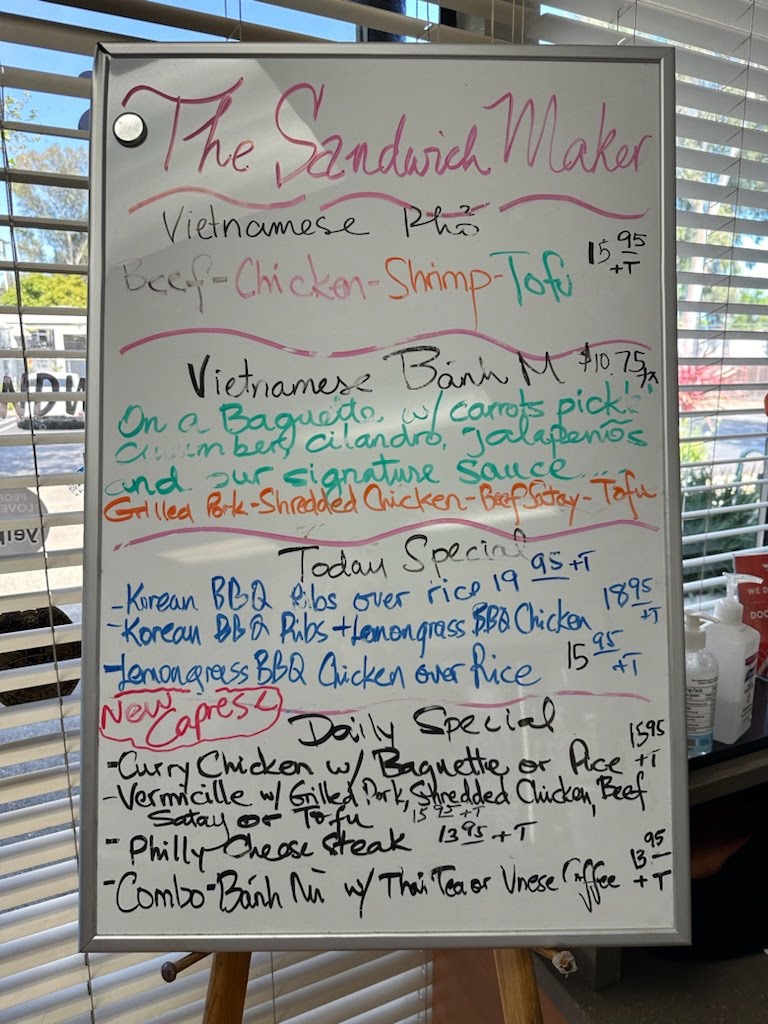 The Sandwich Maker
Vietnamese Phở
15 95 +T
Beef - Chicken - Shrimp - Tofu
Vietnamese Bánh M $10.75
On a Baguette w/ carrots pick
cucumber, cilandro, jalapeños
and our signature sauce...
Grilled Pork - Shredded Chicken - Beef Satay - Tofu
Today Special
- Korean BBQ Ribs over rice 19 95 +T
- Korean BBQ Ribs + Lemongrass BBQ Chicken 18 95 +T
- Lemongrass BBQ Chicken over Rice 15 95 +T
New Caprese
Daily Special
- Curry Chicken w/ Baguette or Rice 15 95 +T
- Vermicille w/ Grilled Pork, Shredded Chicken, Beef
Satay or Tofu 15 95 +T
- Philly Cheese Steak 13 95 + T
- Combo - Bánh Mì w/ Thai Tea or Vnese Coffee 13 95 + T
PEOPLE
LOVE
yelp
WE D
DOG